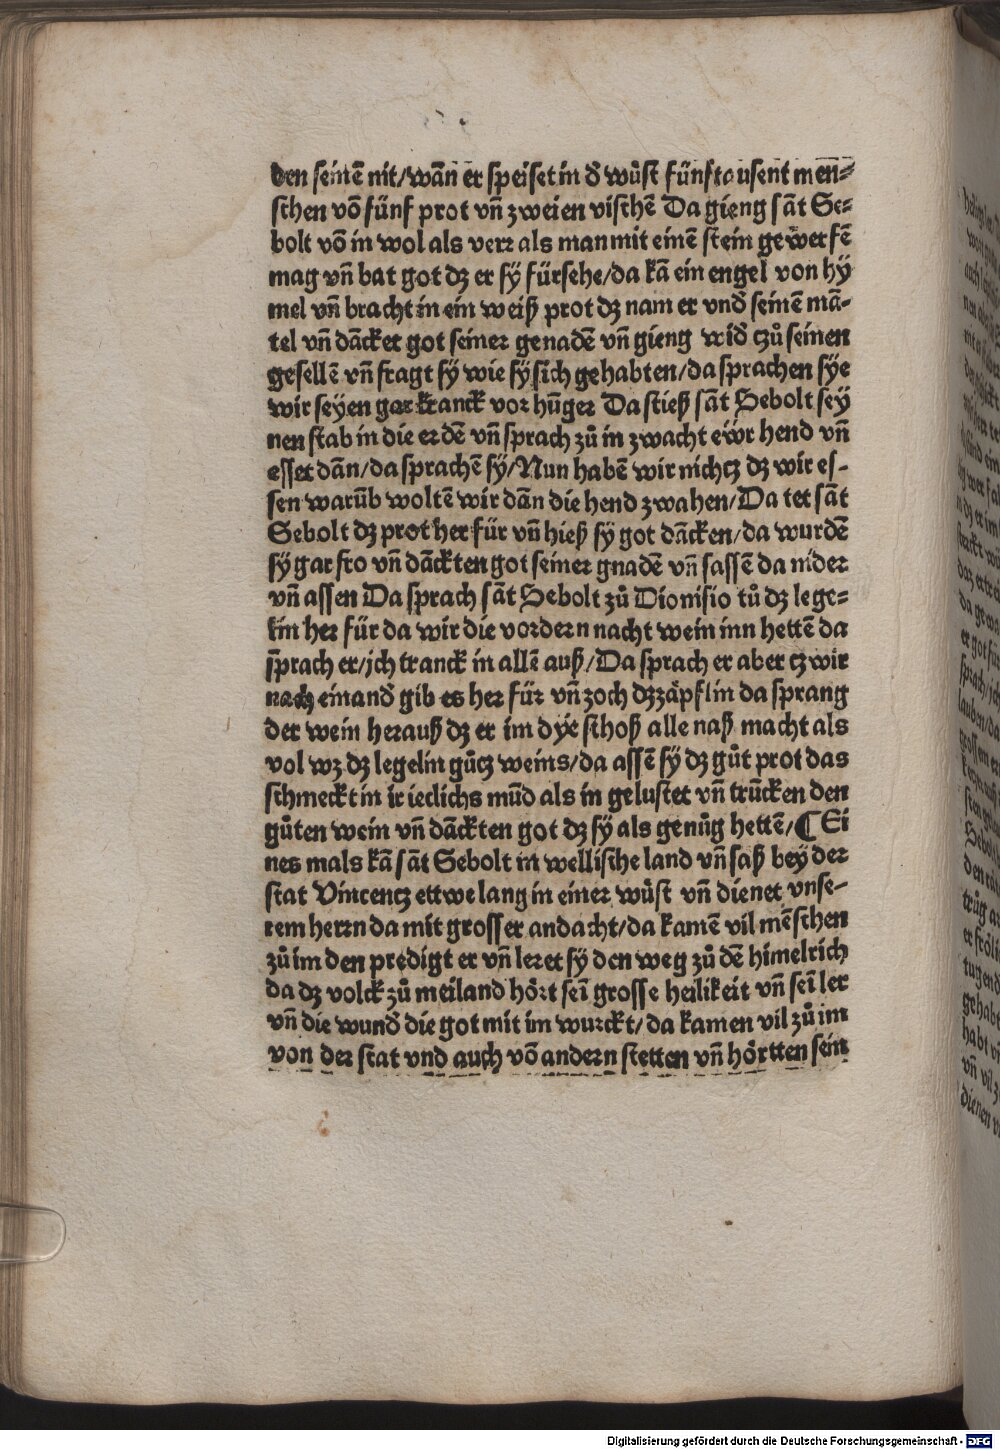 den seinē nit/wān er speiset in d̄ wůst fünftausent men⸗
schen vō fünf prot vn̄ zweien vischē Da gieng sāt Se⸗
bolt vō in wol als verr als man mit einē stein gewerfē
mag vn̄ bat got dz er sÿ fürsehe/da kā ein engel von hÿ
mel vn̄ bracht in ein weiß prot dz nam er vnd̄ seinē mā⸗
tel vn̄ dācket got seiner genadē vn̄ gieng wid̄ czů seinen
gesellē vn̄ fragt sÿ wie sÿ sich gehabten/da sprachen sÿe
wir seyen gar kranck vor hūger Da stieß sāt Sebolt sey
nen stab in die erdē vn̄ sprach zů in zwacht eẅr hend vn̄
esset dān/da sprachē sÿ/Nun habē wir nichcz dz wir es⸗
sen warūb woltē wir dān die hend zwahen/Da tet sāt
Sebolt dz prot her für vn̄ hieß sÿ got dācken/da wurdē
sÿ gar fro vn̄ dāckten got seiner gnadē vn̄ sassē da nider
vn̄ assen Da sprach sāt Sebolt zů Dionisio tů dz lege⸗
lin her für da wir die vordern nacht wein inn hettē da
sprach er/jch tranck in allē auß/Da sprach er aber czwir
nach einand̄ gib es her für vn̄ zoch dz zäpflin da sprang
der wein herauß dz er im dÿe schoß alle naß macht als
vol wz dz legelin gůcz weins/da assē sÿ dz gůt prot das
schmeckt in ir ieclichs mūd als in gelustet vn̄ trūcken den
gůten wein vn̄ dāckten got dz sÿ als genůg hettē/¶ Ei
nes mals kā sāt Sebolt in wellische land vn̄ saß bey der
stat Vincencz ettwe lang in einer wůst vn̄ dienet vnse⸗
rem herrn da mit grosser andacht/da kamē vil mēschen
zů im den predigt er vn̄ leret sÿ den weg zů dē himelrich
da dz volck zů meiland hört sei̅ grosse heilikeit vn̄ sei̅ ler
vn̄ die wund̄ die got mit im wurckt/da kamen vil zů im
von der stat vnd auch vō andern stetten vn̄ hörtten sein
Digitalisierung gefördert durch die Deutsche Forschungsgemeinschaft - DFG